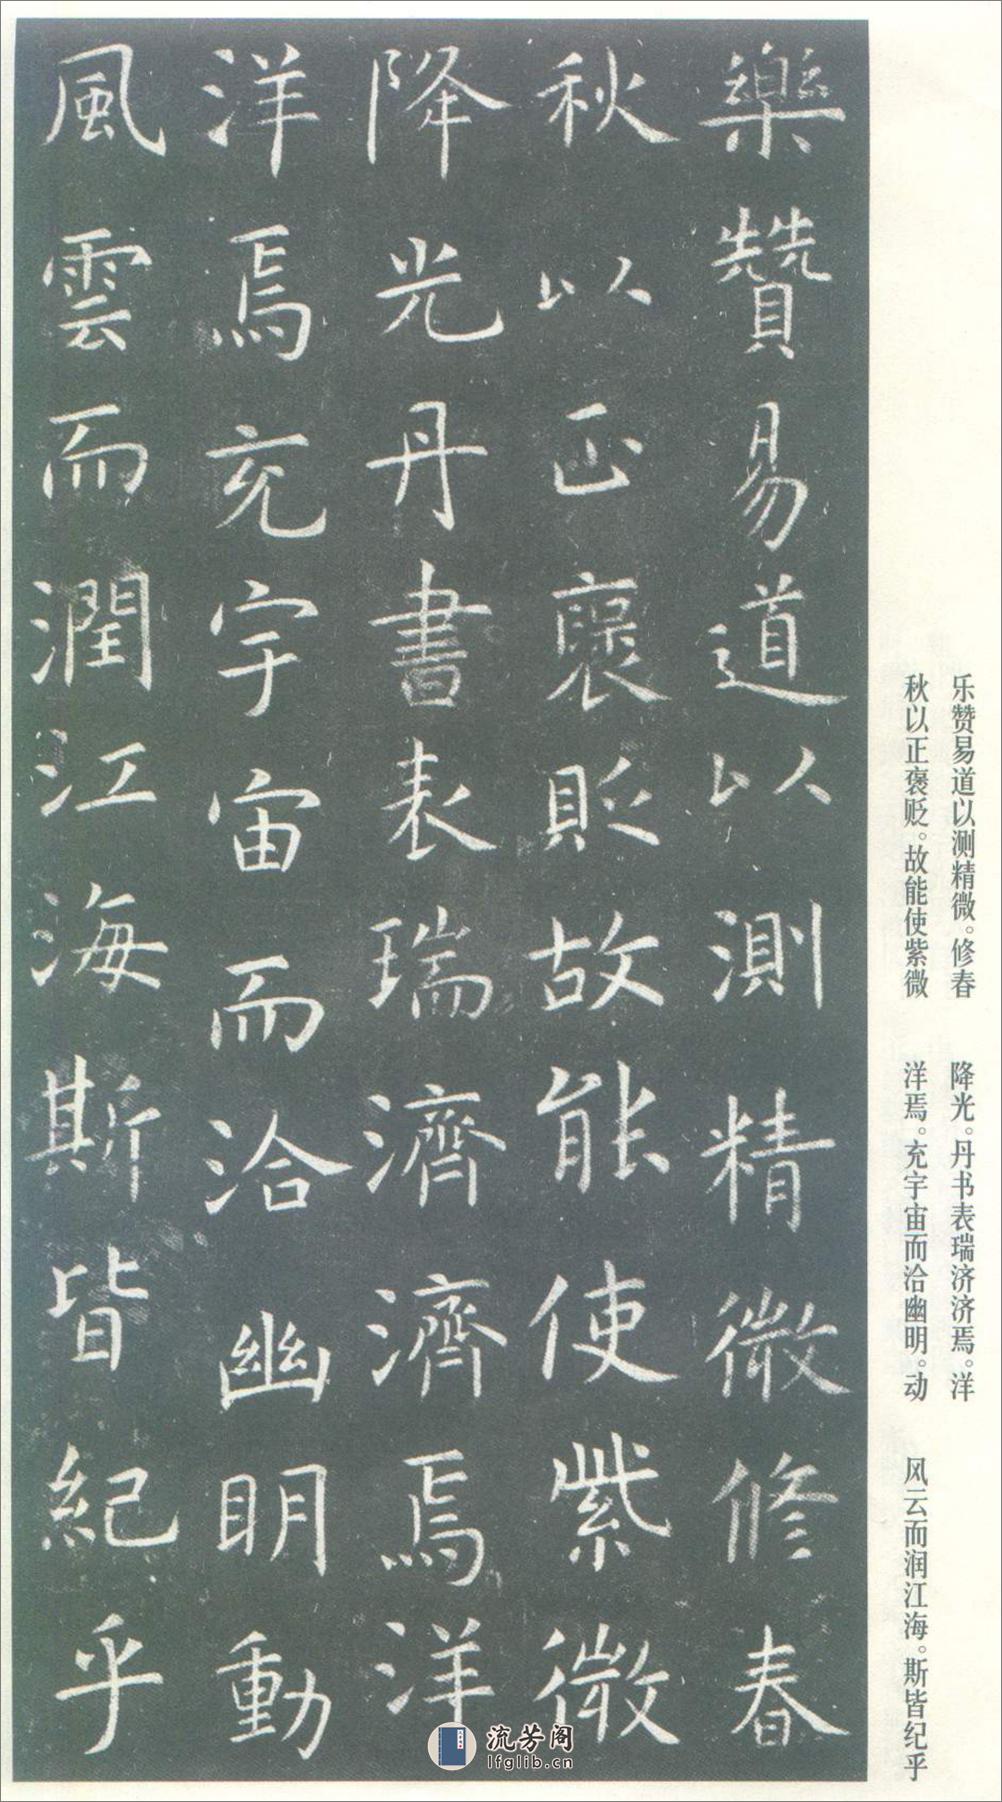 樂贊易道以測精微修春
秋以正褒貶故能使紫微
降光丹書表瑞濟濟焉洋
洋焉充宇宙而洽幽明動
風雲而潤江海斯皆紀乎
乐赞易道以测精微。修春
秋以正褒贬。故能使紫微
降光。丹书表瑞济济焉。洋
洋焉。充宇宙而洽幽明。动
风云而润江海。斯皆纪乎
流芳阁
lfglib.cn